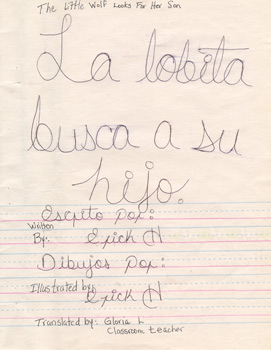 The Little Wolf Looks For Her Son
La lobita
busca a su
hijo.
Escrito por:
Written
By: Erick H
Dibujos por:
Illustrated by:
Erick H
Translated by: Gloria L
Classroom teacher